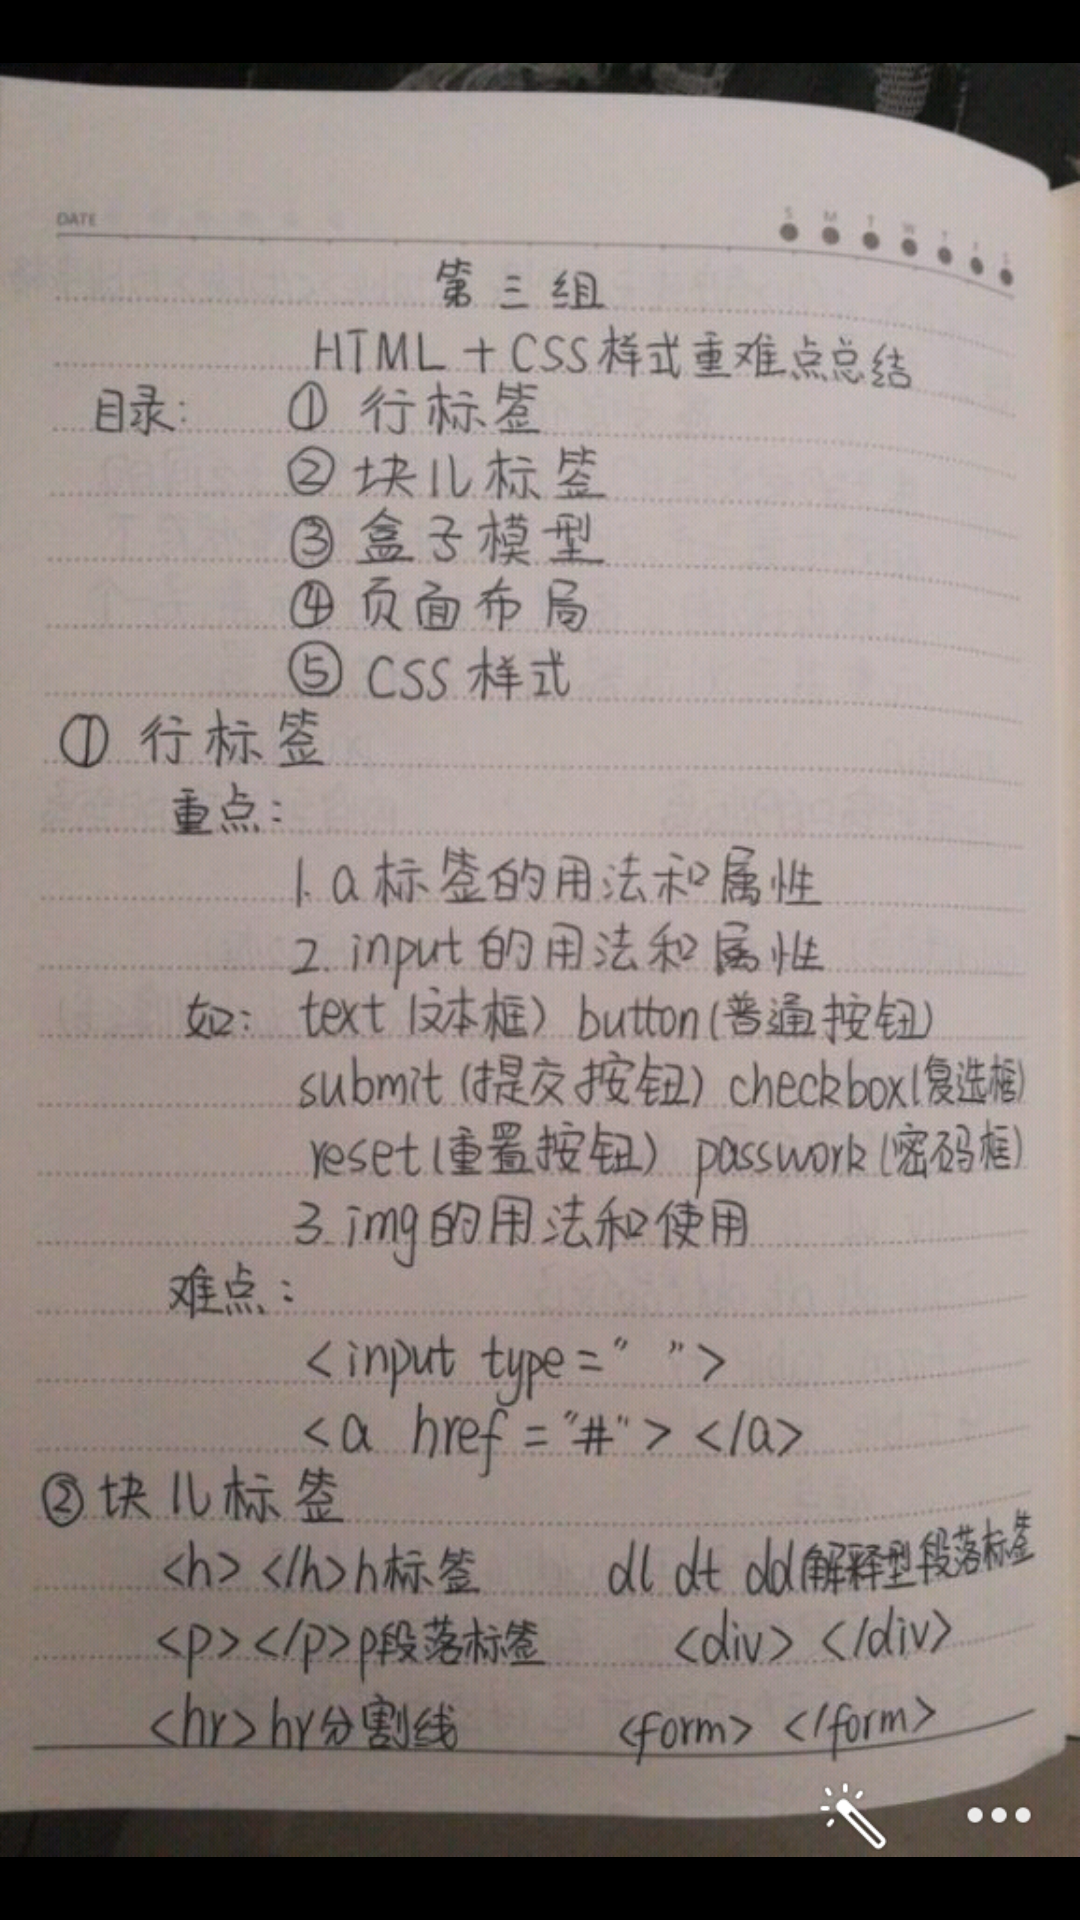 DATE
S M T W T F S
第三组
HTML+CSS样式重难点总结
目录: ① 行标签
② 块儿标签
③ 盒子模型
④ 页面布局
⑤ CSS样式
① 行标签
重点:
1. a标签的用法和属性
2. input的用法和属性
如: text(文本框) button(普通按钮)
submit(提交按钮) checkbox(复选框)
reset(重置按钮) passwork(密码框)
3. img的用法和使用
难点:
<input type=" ">
<a href="#"></a>
② 块儿标签
<h></h>h标签 dl dt dd解释型段落标签
<p></p>p段落标签 <div></div>
<hr>hr分割线 <form></form>